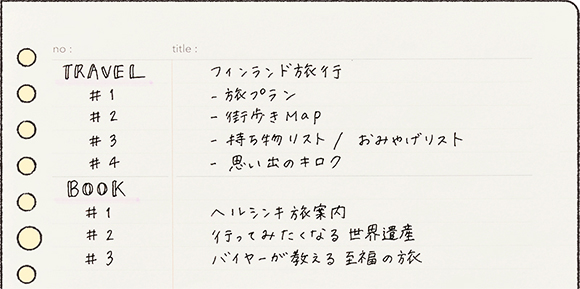 no : title :
TRAVEL フィンランド旅行
#1 - 旅プラン
#2 - 街歩きMap
#3 - 持ち物リスト / おみやげリスト
#4 - 思い出のキロク
BOOK
#1 ヘルシンキ旅案内
#2 行ってみたくなる世界遺産
#3 バイヤーが教える至福の旅